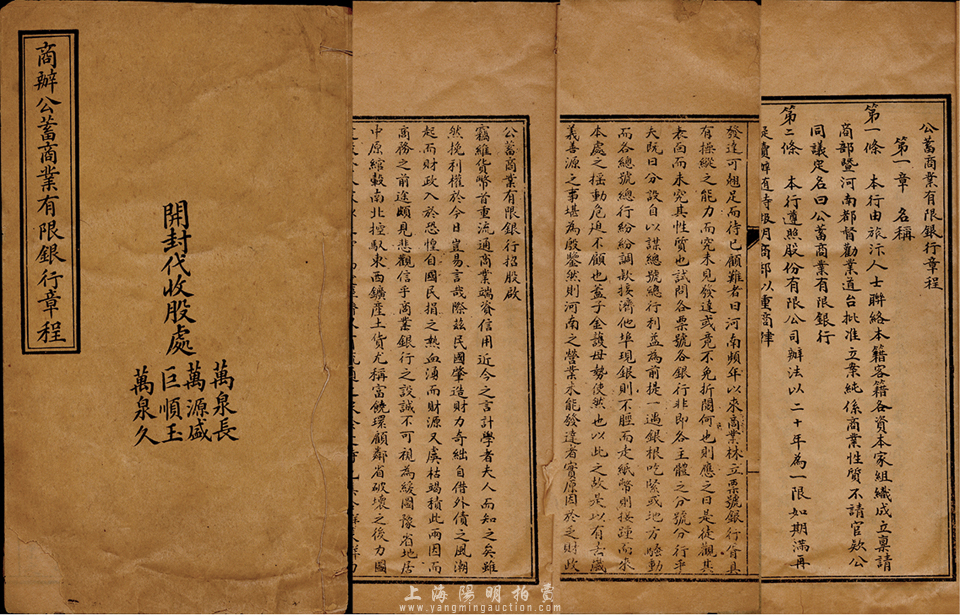 商辦公蓄商業有限銀行章程
開封代收股處
萬泉長
萬源盛
巨順玉
萬泉久
公蓄商業有限銀行招股啟
竊維貨幣首重流通商業端資信用近今之言計學者夫人而知之矣雖
然挽利權於今日豈易言哉際茲民國肇造財力奇絀自借外債之風潮
起而財政入於恐惶自國民捐之熱血湧而財源又虞枯竭積此兩因而
商務之前途頗見悲觀信乎商業銀行之設誠不可視為緩圖豫省地居
中原綰轂南北控馭東西鑛產土貨尤稱富饒環顧鄰省破壞之後力圖
發達可翹足而待已顧難者曰河南頻年以來商業林立票號銀行皆具
有操縱之能力而究未見發達或竟不免折閱何也則應之曰是徒觀其
表面而未究其性質也試問各票號各銀行非即各主體之分號分行乎
夫既曰分設自以謀總號總行利益為前提一遇銀根吃緊或地方變動
而各總號總行紛紛調款接濟他埠現銀則不脛而走紙幣則接踵而來
本處之搖動危迫不顧也蓋子金護母勢使然也以此之故是以有去歲
義善源之事堪為殷鑒然則河南之營業未能發達者實原因於乏財政
公蓄商業有限銀行章程
第一章 名稱
第一條 本行由旅汴人士聯絡本籍客籍各資本家組織成立稟請
商部暨河南都督勸業道台批准立案純係商業性質不請官欵公
同議定名曰公蓄商業有限銀行
第二條 本行遵照股份有限公司辦法以二十年為一限如期滿再
上海陽明拍賣
www.yangmingauction.com